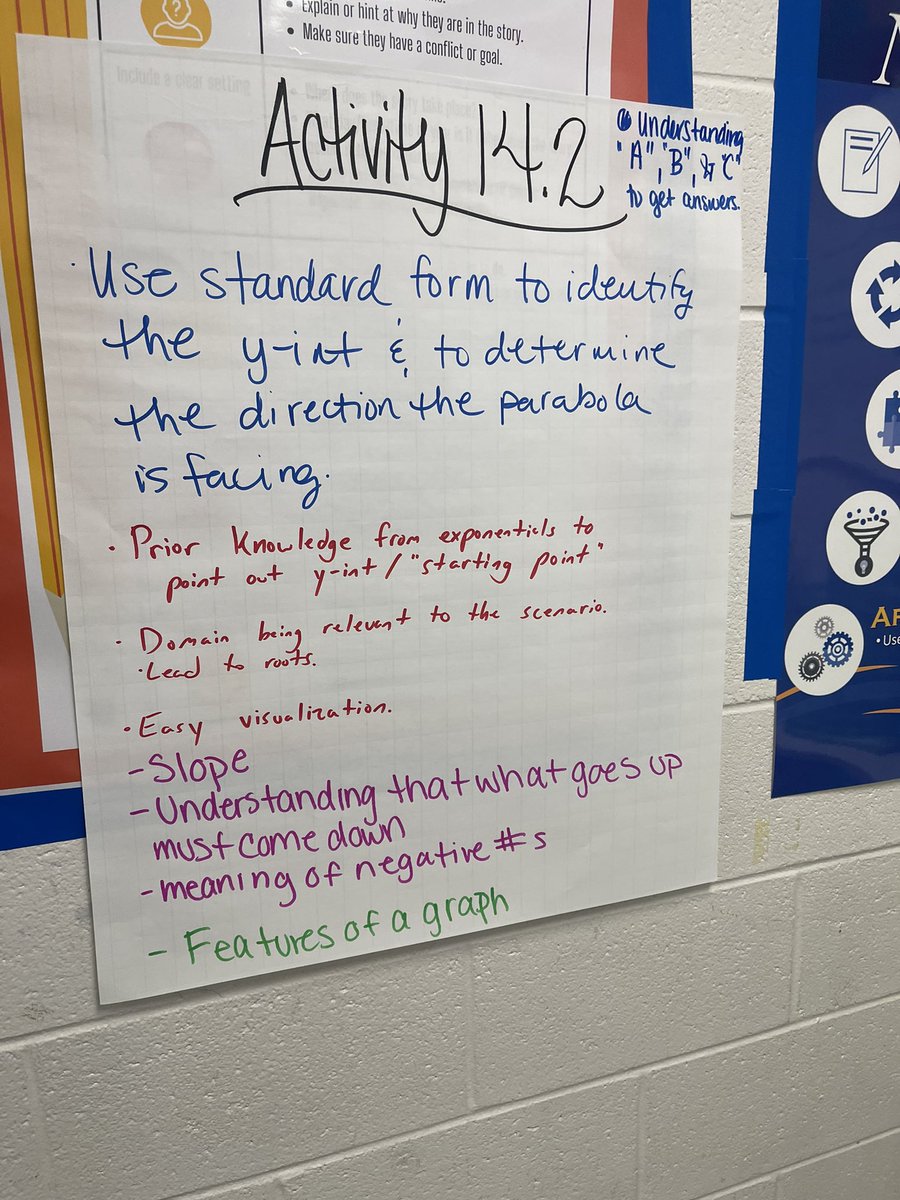 • Explain or hint at why they are in the story.
• Make sure they have a conflict or goal.
Include a clear setting
Activity 14.2
• Understanding
"A", "B", & "C"
to get answers.
· Use standard form to identify
the y-int & to determine
the direction the parabola
is facing.
· Prior Knowledge from exponentials to
point out y-int / "starting point"
· Domain being relevant to the scenario.
· Lead to roots.
· Easy visualization.
- Slope
- Understanding that what goes up
must come down
- meaning of negative #s
- Features of a graph
• Use